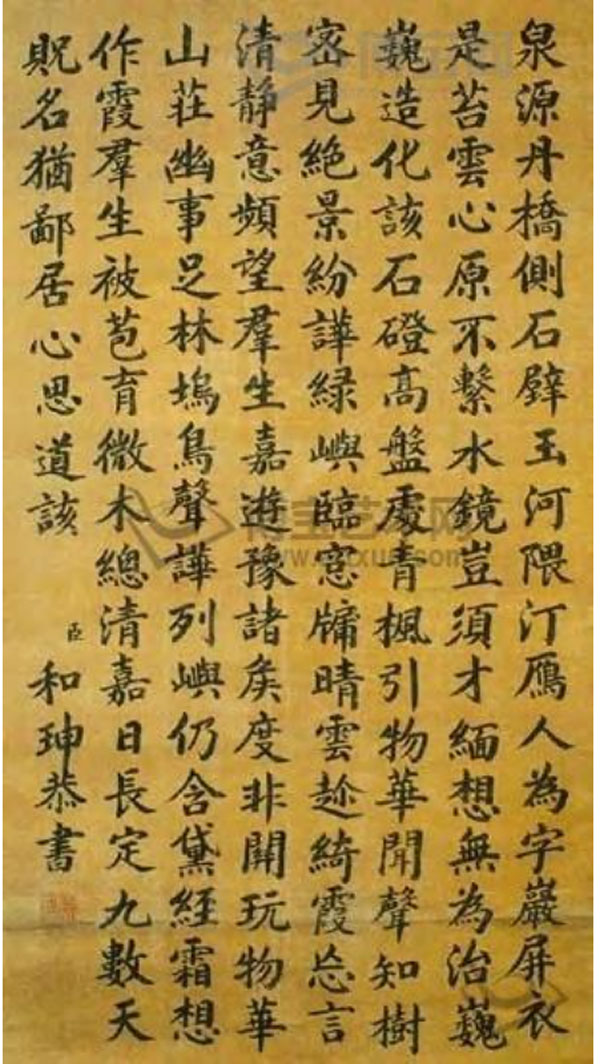 泉源丹橋側石壁玉河隈汀鴈人為字巖屏衣
是苔雲心原不繫水鏡豈須才緬想無為治巍
巍造化該石磴高盤處青楓引物華聞聲知樹
宻見絶景紛譁緑嶼臨窓牖晴雲趂綺霞忘言
清靜意頻望羣生嘉遊豫諸矦度非開玩物華
山荘幽事足林塢鳥聲譁列嶼仍含黛経霜想
作霞羣生被苞育微木總清嘉日長定九數天
貺名猶鄙居心思道該
臣和珅恭書
博宝艺术网